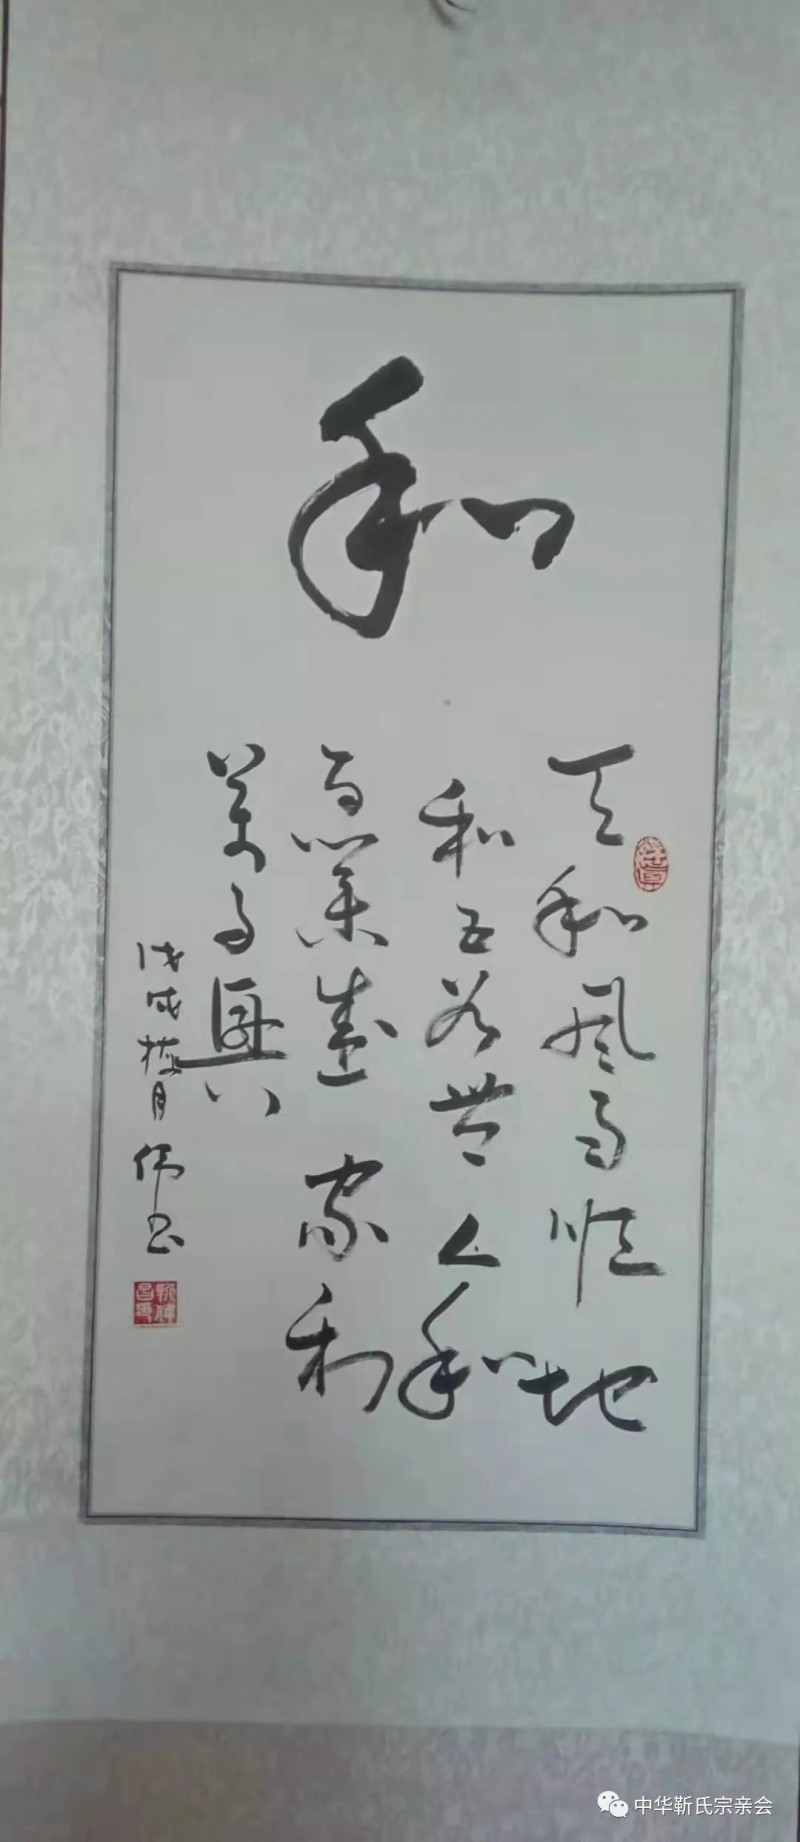 和
天和风雨顺地
和五谷丰人和
百业盛家和
万事兴
戊戌梅月伟书
中华靳氏宗亲会